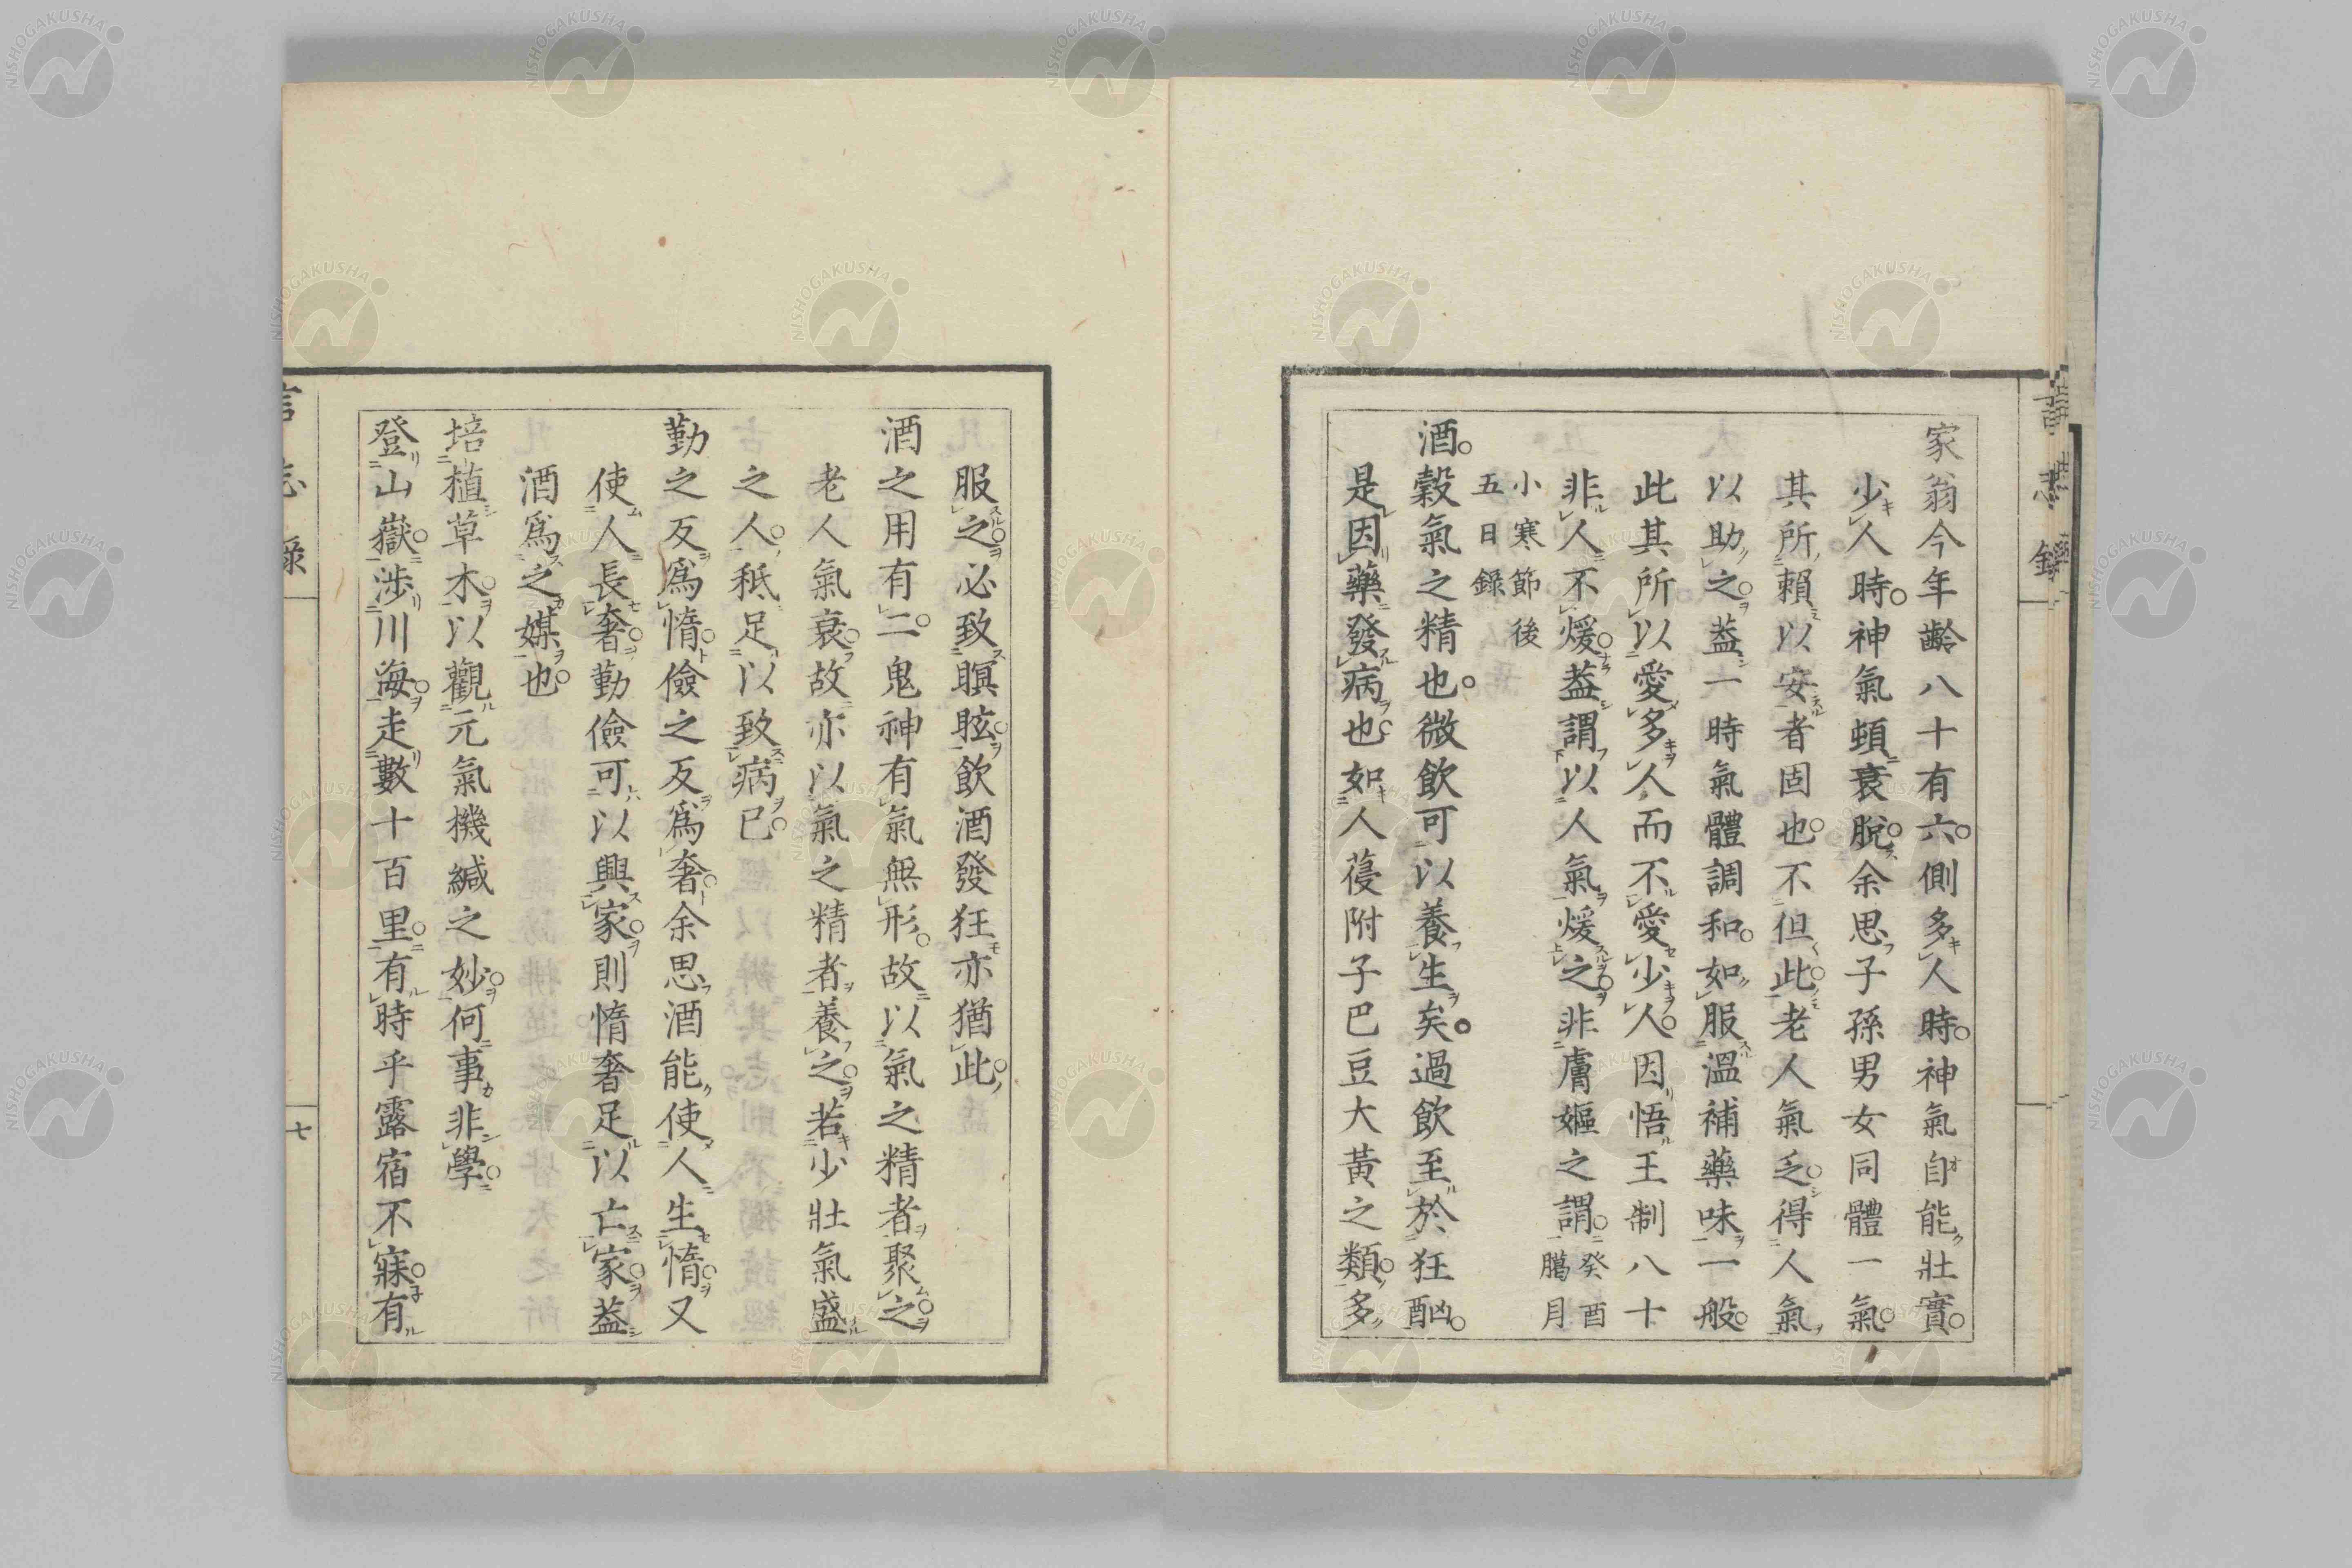 家翁今年齡八十有六。側多キレ人時。神氣自オ能ク壯實。
少キレ人時。神氣頓ニ衰脫。余思フ子孫男女同體一氣。
其所賴以安者固也。不但此老人氣乏。得人氣
以助之。葢一時氣體調和。如服溫補藥味一般。
此其所以愛多人而不愛少人。因悟王制八十
非人不煖。葢謂以人氣煖之。非膚嫗之謂。癸酉臘月
小寒節後五日錄
酒。穀氣之精也。微飲可以養生矣。過飲至於狂酗。
是因藥發病也。如人葠附子巴豆大黃之類。多
服之。必致瞑眩。飲酒發狂亦猶此。
酒之用有二。鬼神有氣無形。故以氣之精者聚之。
老人氣衰。故亦以氣之精者養之。若少壯氣盛
之人。秪足以致病已。
勤之反爲惰。儉之反爲奢。余思酒能使人生惰。又
使人長奢。勤儉可以興家。則惰奢足以亡家。葢
酒爲之媒也。
培植草木。以觀元氣機緘之妙。何事非學。
登山嶽。涉川海。走數十百里。有時乎露宿不寐。有
言志錄
七
NISHOGAKUSHA